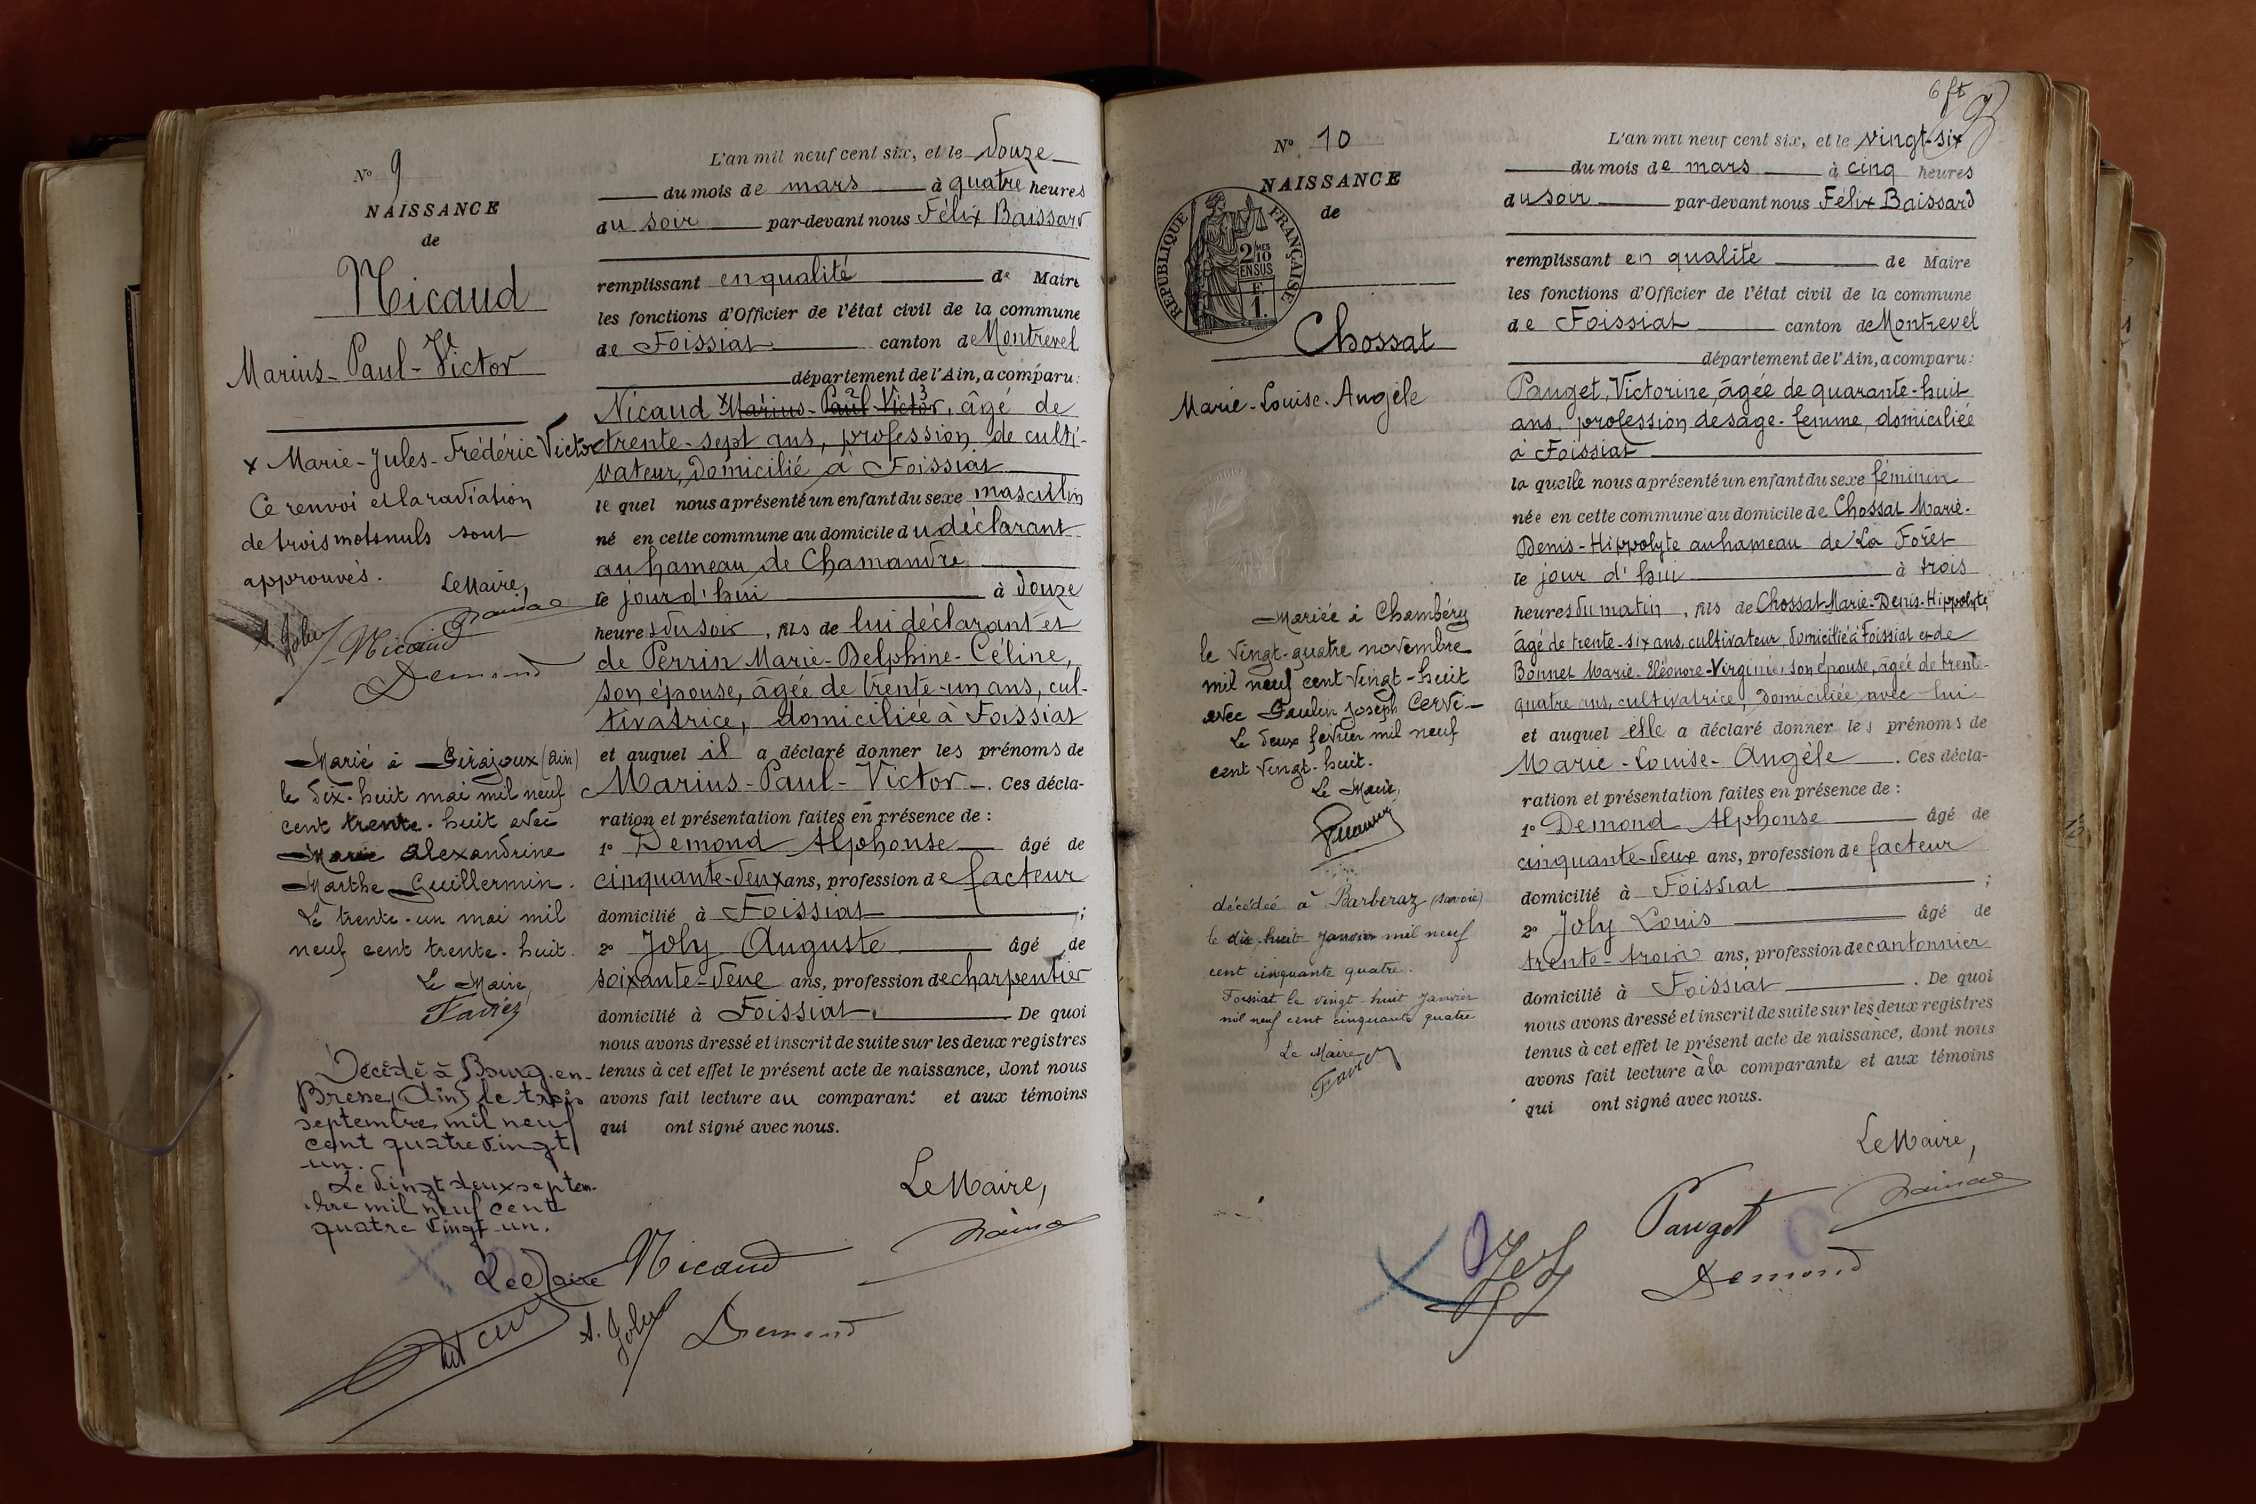 N° 9
NAISSANCE
de
Nicaud
Marius-Paul-Victor
x Marie-Jules-Frédéric Victor
Ce renvoi et la radiation
de trois mots nuls sont
approuvés.
Le Maire,
A. Joly
Nicaud
Demond
Marié à Girajoux (Ain)
le dix-huit mai mil neuf
cent trente-huit avec
Marie Alexandrine
Marthe Guillermin.
Le trente-un mai mil
neuf cent trente-huit.
Le Maire,
Décédé à Bourg-en-
Bresse (Ain) le trois
septembre mil neuf
cent quatre vingt
un.
Le vingt deux septem-
bre mil neuf cent
quatre vingt-un.
Le Maire
L'an mil neuf cent six, et le douze
du mois de mars à quatre heures
du soir par-devant nous Félix Baissard
remplissant en qualité de Maire
les fonctions d'Officier de l'état civil de la commune
de Foissiat canton de Montrevel
département de l'Ain, a comparu:
Nicaud x Marius-Paul-Victor, âgé de
trente-sept ans, profession de culti-
vateur, domicilié à Foissiat
le quel nous a présenté un enfant du sexe masculin
né en cette commune au domicile du déclarant
au hameau de Chamandre
le jour d'hui à douze
heures du soir, fils de lui déclarant et
de Perrin Marie-Delphine-Céline,
son épouse, âgée de trente-un ans, cul-
tivatrice, domiciliée à Foissiat
et auquel il a déclaré donner les prénoms de
Marius-Paul-Victor. Ces décla-
ration et présentation faites en présence de :
1° Demond Alphonse âgé de
cinquante-deux ans, profession de facteur
domicilié à Foissiat ;
2° Joly Auguste âgé de
soixante-deux ans, profession de charpentier
domicilié à Foissiat. De quoi
nous avons dressé et inscrit de suite sur les deux registres
tenus à cet effet le présent acte de naissance, dont nous
avons fait lecture au comparant et aux témoins
qui ont signé avec nous.
Le Maire,
Nicaud
A. Joly
Demond
N° 10
NAISSANCE
de
REPUBLIQUE FRANÇAISE
2 MES
10
EN SUS
F.
1.
Chossat
Marie-Louise-Angèle
Mariée à Chambéry
le vingt-quatre novembre
mil neuf cent vingt-huit
avec Paulin Joseph Cervi
Le deux février mil neuf
cent vingt-huit.
Le Maire,
décédée à Barberaz (Savoie)
le dix-huit janvier mil neuf
cent cinquante quatre.
Foissiat le vingt-huit janvier
mil neuf cent cinquante quatre
Le Maire
L'an mil neuf cent six, et le vingt-six
du mois de mars à cinq heures
du soir par-devant nous Félix Baissard
remplissant en qualité de Maire
les fonctions d'Officier de l'état civil de la commune
de Foissiat canton de Montrevel
département de l'Ain, a comparu:
Pauget, Victorine, âgée de quarante-huit
ans, profession de sage-femme, domiciliée
à Foissiat
la quelle nous a présenté un enfant du sexe féminin
née en cette commune au domicile de Chossat Marie-
Denis-Hippolyte au hameau de La Forêt
le jour d'hui à trois
heures du matin, fils de Chossat Marie-Denis-Hippolyte,
âgé de trente-six ans, cultivateur, domicilié à Foissiat et de
Bonnet Marie-Eléonore-Virginie, son épouse, âgée de trente-
quatre ans, cultivatrice, domiciliée avec lui
et auquel elle a déclaré donner les prénoms de
Marie-Louise-Angèle. Ces décla-
ration et présentation faites en présence de :
1° Demond Alphonse âgé de
cinquante-deux ans, profession de facteur
domicilié à Foissiat ;
2° Joly Louis âgé de
trente-trois ans, profession de cantonnier
domicilié à Foissiat. De quoi
nous avons dressé et inscrit de suite sur les deux registres
tenus à cet effet le présent acte de naissance, dont nous
avons fait lecture à la comparante et aux témoins
qui ont signé avec nous.
Le Maire,
Pauget
Demond